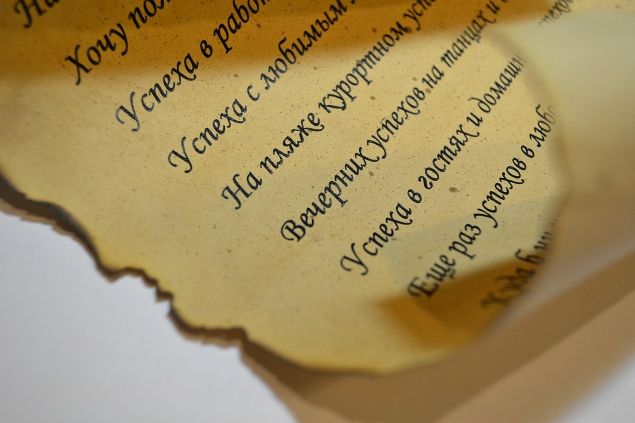 На
Хочу
Успеха в
Успеха с любимым
На пляже курортном
Вечерних успехов на танцах и
Успеха в гостях и
Еще раз успехов в
Куда б